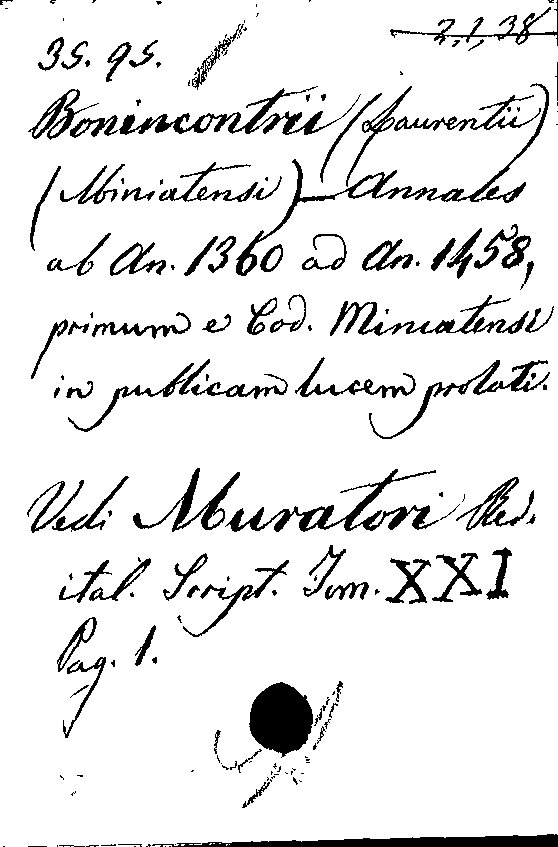 2,1,38
35. 95.
Bonincontrii (Laurentii)
(Miniatensi) — Annales
ab An. 1360 ad An. 1458,
primum e Cod. Miniatensi
in publicam lucem prolati.
Vedi Muratori Rer.
ital. Script. Tom. XXI
Pag. 1.